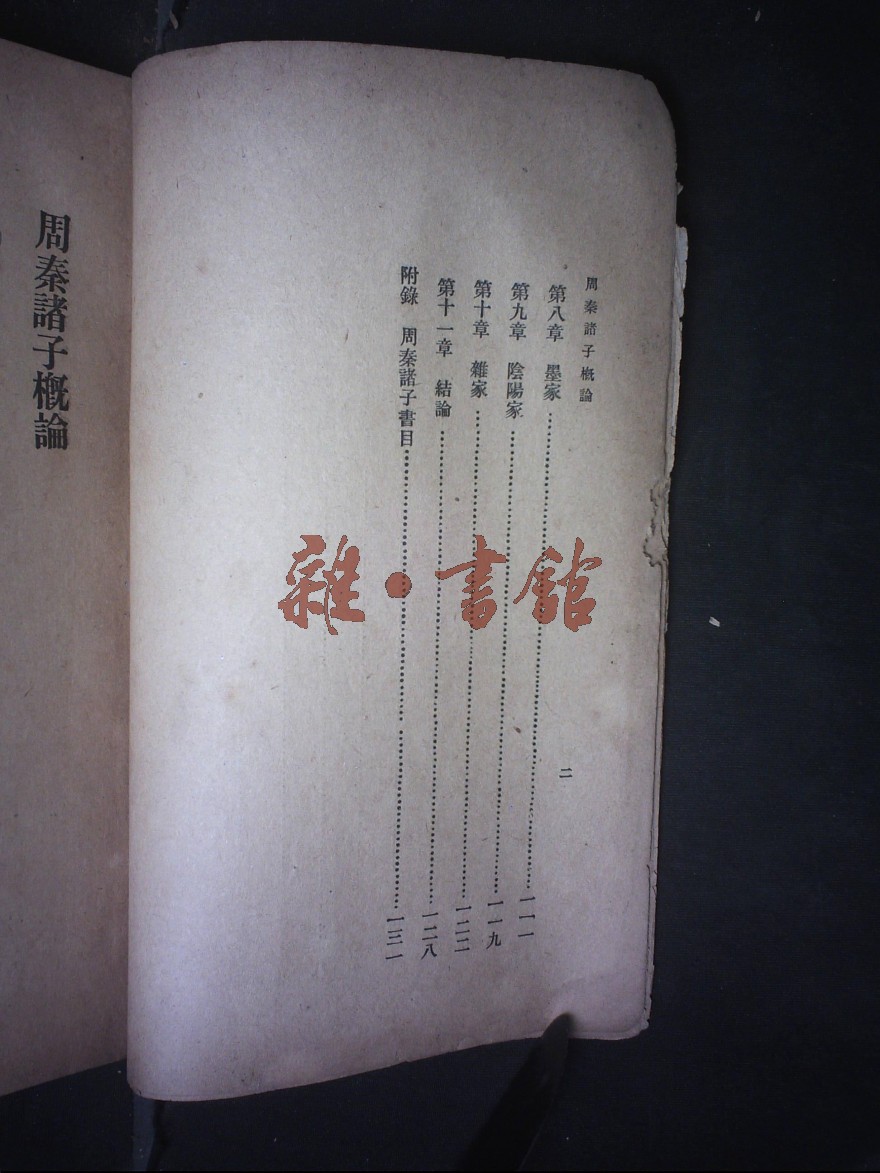 周秦諸子概論
二
第八章　墨家⋯⋯⋯⋯一一一
第九章　陰陽家⋯⋯⋯⋯一一九
第十章　雜家⋯⋯⋯⋯一二二
第十一章　結論⋯⋯⋯⋯一二八
附錄　周秦諸子書目⋯⋯⋯⋯一三一
周秦諸子概論
雜·書館